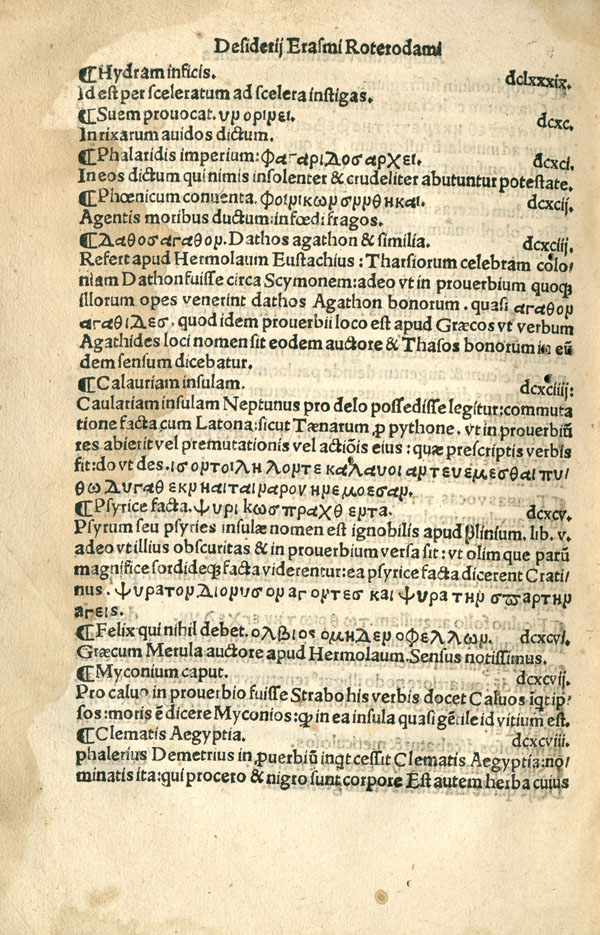 Desiderij Erasmi Roterodami
¶Hydram inficis. dclxxxix.
Id est per sceleratum ad scelera instigas.
¶Suem prouocat. υρ οριρει. dcxc.
In rixarum auidos dictum.
¶Phalaridis imperium: Φαγαριδοσ αρχει. dcxci.
In eos dictum qui nimis insolenter & crudeliter abutuntur potestate.
¶Phœnicum conuenta. φοιρικωρ συρρθηκαι. dcxcij.
Agentis moribus ductum: infœdifragos.
¶Δαθοσ αγαθορ. Dathos agathon & similia. dcxciij.
Refert apud Hermolaum Eustachius: Tharsiorum celebram colo/
niam Dathon fuisse circa Scymonem: adeo vt in prouerbium quoq̃
illorum opes venerint dathos Agathon bonorum. quasi αγαθορ
αγαθιδεσ, quod idem prouerbij loco est apud Græcos vt verbum
Agathides loci nomen sit eodem auctore & Thasos bonorum in eũ
dem sensum dicebatur.
¶Calauriam insulam. dcxciiij:
Caulariam insulam Neptunus pro delo possedisse legitur: commuta
tione facta cum Latona: sicut Tænarum ꝓ pythone. vt in prouerbiũ
res abierit vel premutationis vel actiõis eius: quæ prescriptis verbis
fit: do vt des. ισ ορτοι λη λορτε καλαυοι αρτευεμεσθαι πυ/
θω Δυγαθ εκρηαιται μαρον ημεμοεσαρ.
¶Psyrice facta. Ψυρι κωσ πραχθ ερτα. dcxcv.
Psyrum seu psyries insulæ nomen est ignobilis apud plinium. lib. v.
adeo vt illius obscuritas & in prouerbium versa sit: vt olim que parũ
magnifice sordideq̃ facta viderentur: ea psyrice facta dicerent Crati/
nus. Ψυρατορ Διορυσορ αγορτεσ και ψυρα τηρ σπαρτηρ
αγεις.
¶Felix qui nihil debet. ολβιος ομηδερ οφελλωρ. dcxcvi.
Græcum Merula auctore apud Hermolaum. Sensus notissimus.
¶Myconium caput. dcxcvij.
Pro caluo in prouerbio fuisse Strabo his verbis docet Caluos iq̃t ip/
sos: moris ẽ dicere Myconios: ꝙ in ea insula quasi gẽtile id vitium est.
¶Clematis Aegyptia. dcxcviii.
phalerius Demetrius in ꝓuerbiũ inqt cessit Clematis Aegyptia: no/
minatis ita: qui procero & nigro sunt corpore Est autem herba cuius